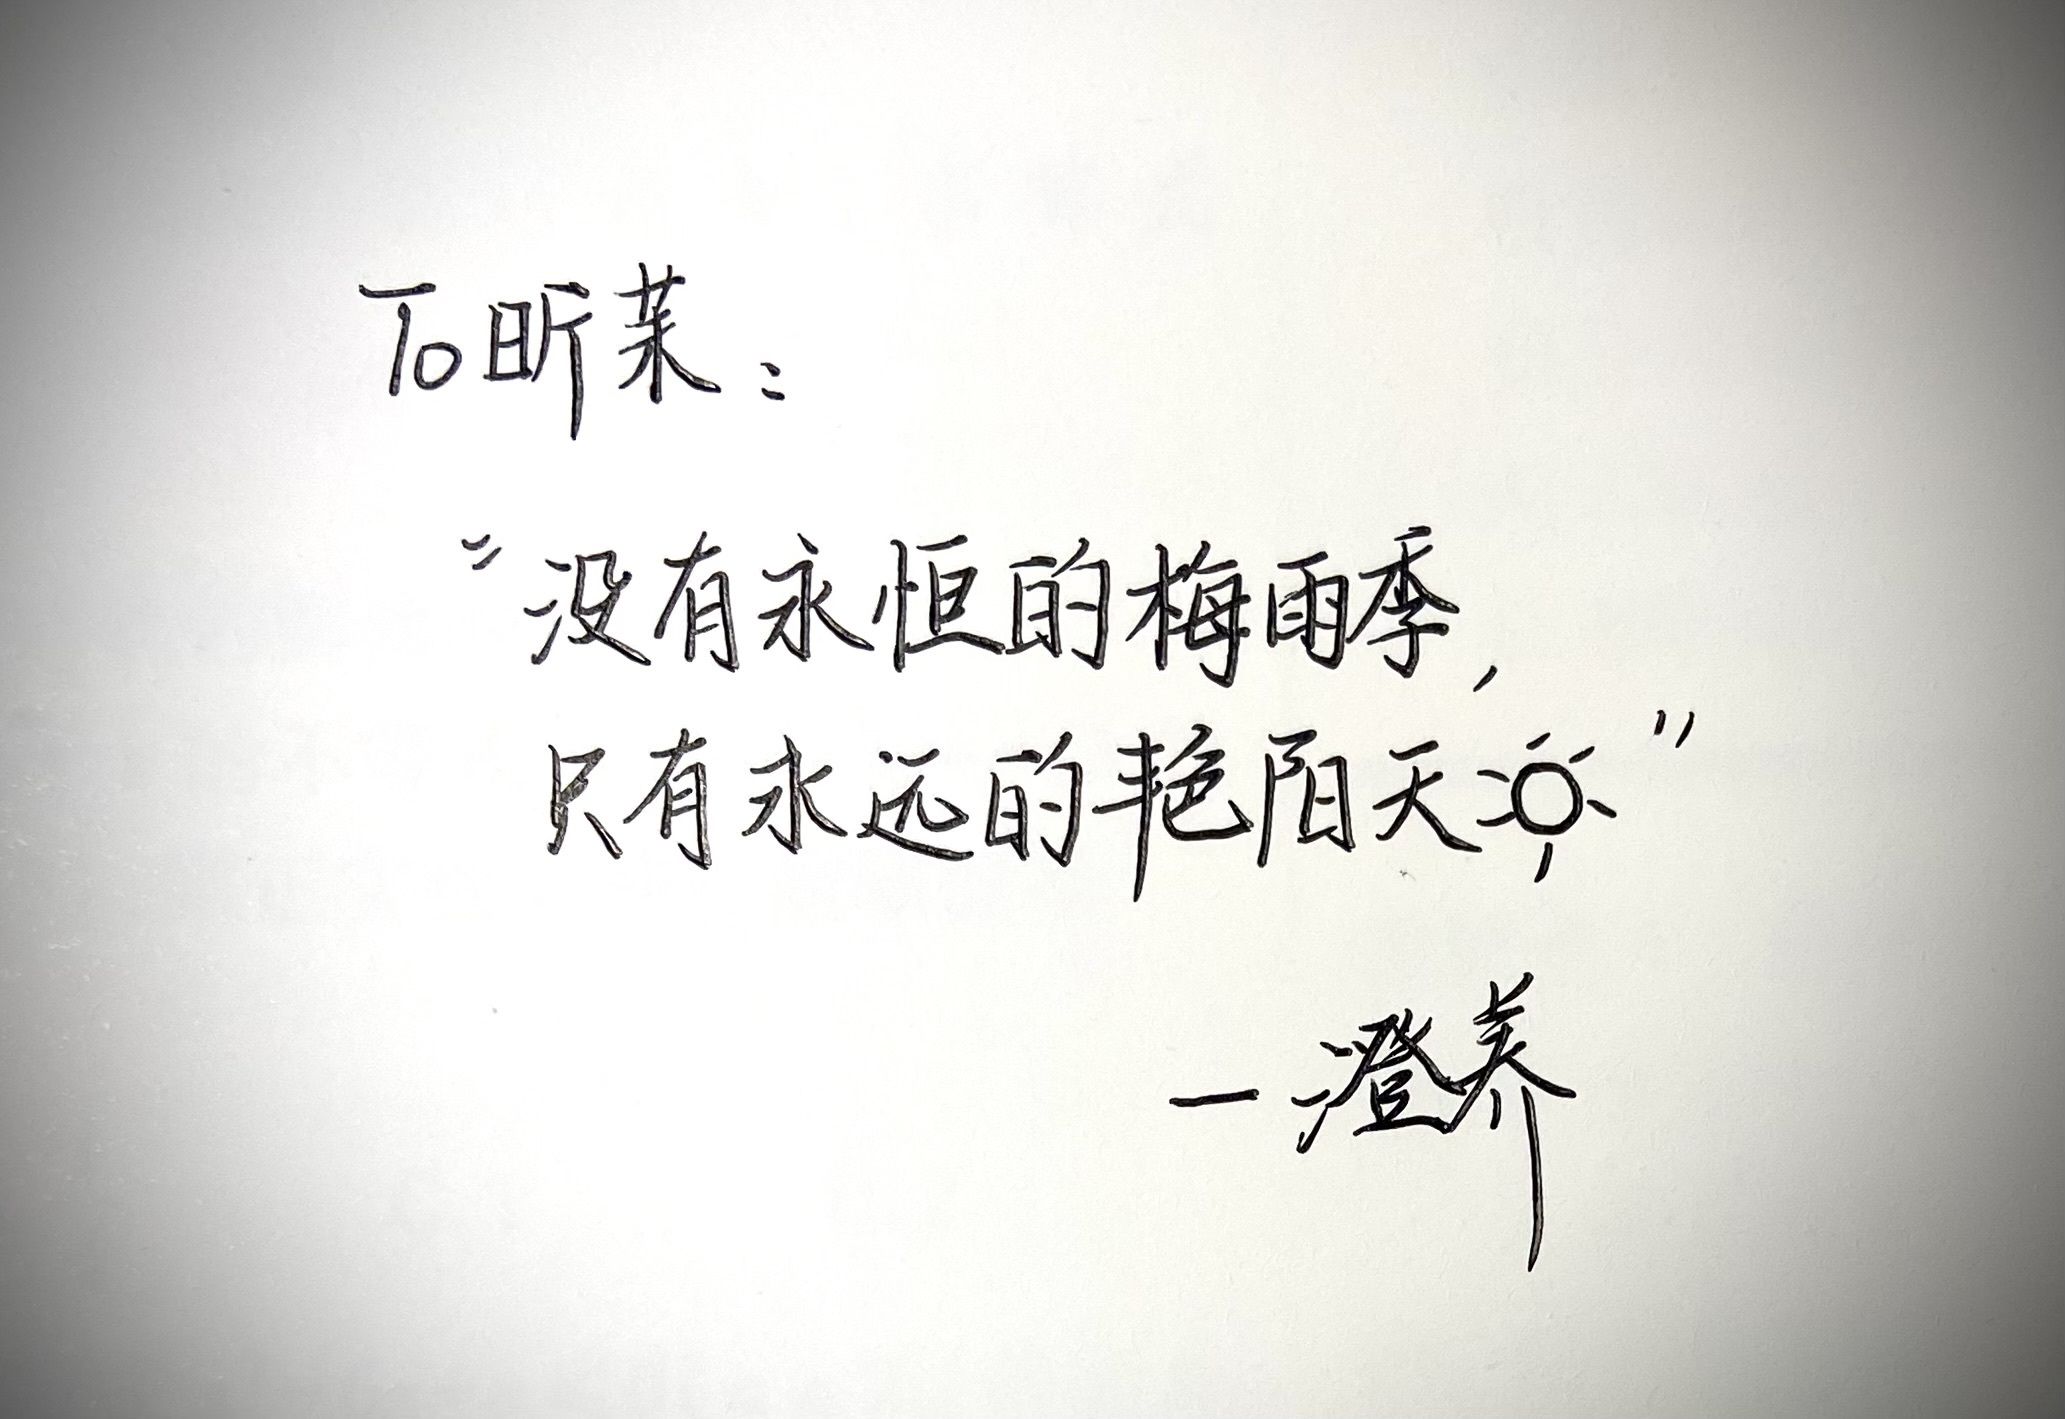 To 昕茉：
“没有永恒的梅雨季，
只有永远的艳阳天”
—澄养